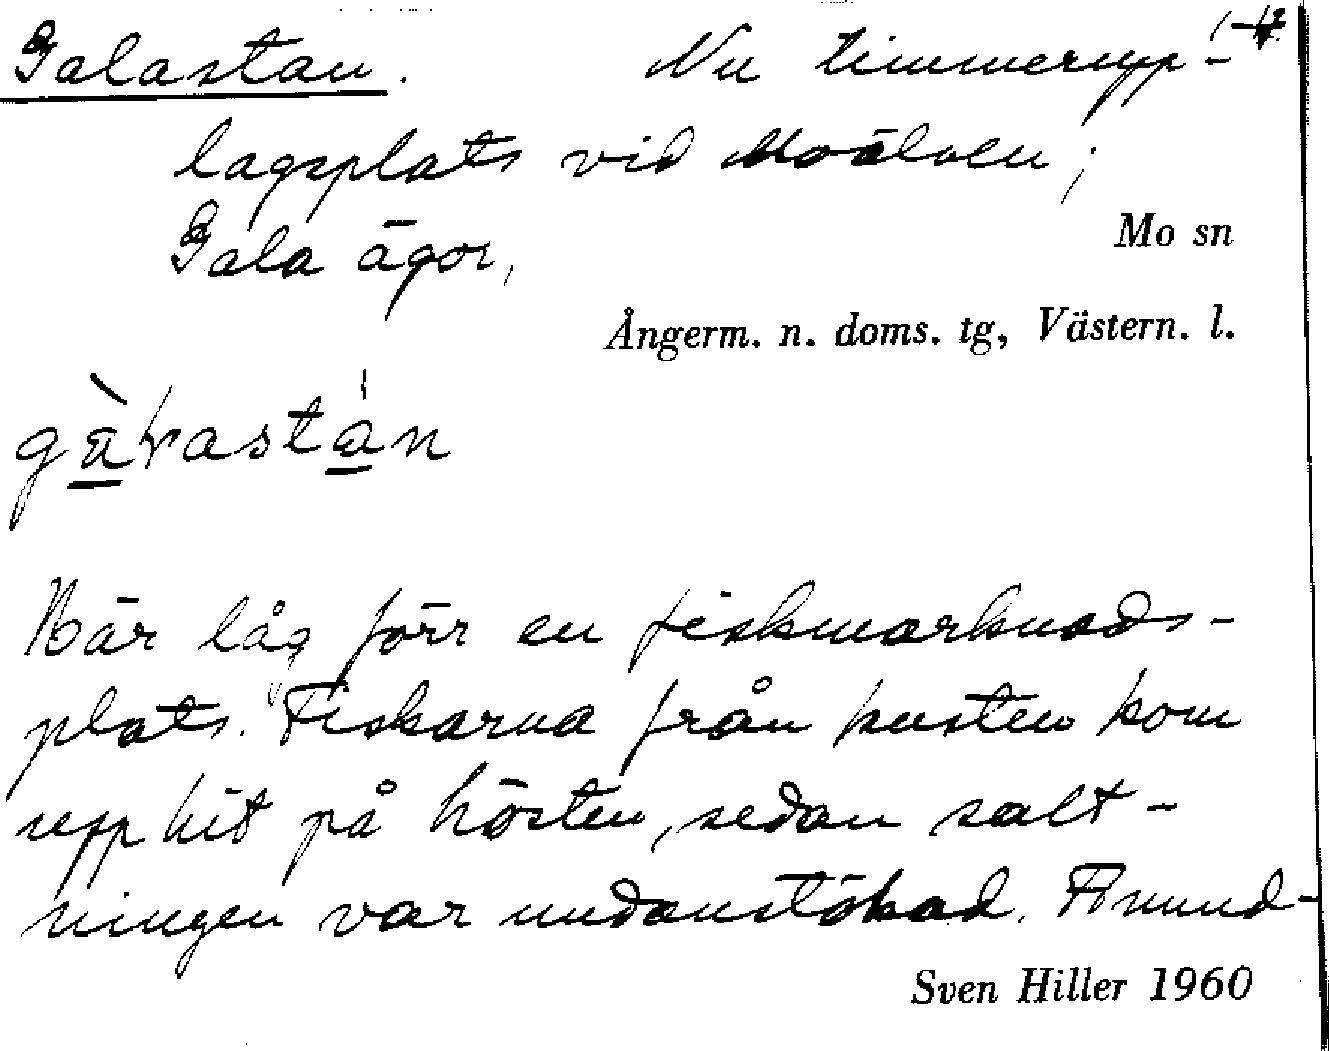 Galastan. Nu timmerupp-
lagsplats vid Moälven;
Gala ägor,
Mo sn
Ångerm. n. doms. tg, Västern. l.
Här låg förr en fiskmarknads-
plats. Fiskarna från kusten kom
upp hit på hösten, sedan salt-
ningen var undanstökad.
Sven Hiller 1960